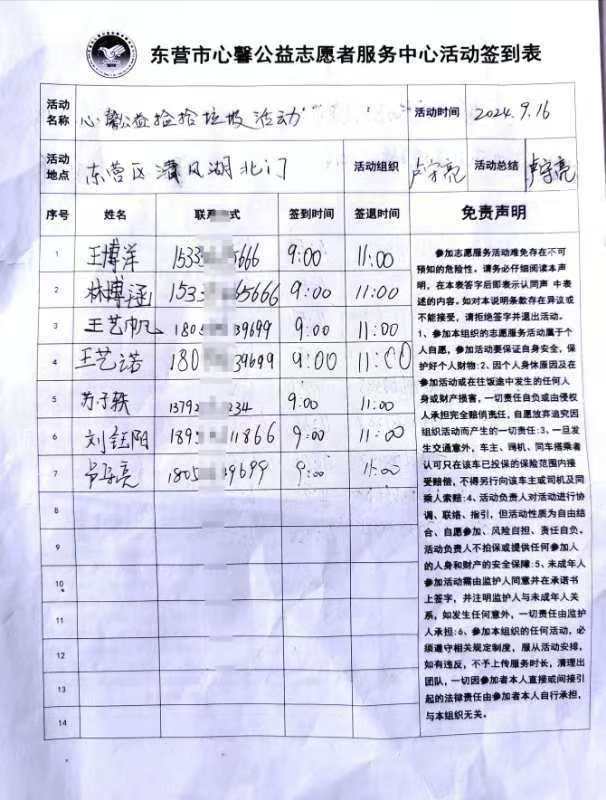 东营市心馨公益志愿者服务中心活动签到表
活动名称 心馨公益捡拾垃圾活动 活动时间 2024.9.16
活动地点 东营区清风湖北门 活动组织 卢学亮 活动总结 卢学亮
序号 姓名 联系方式 签到时间 签退时间 免责声明
1 王博洋 1533 5666 9:00 11:00
2 林博涵 1533 65666 9:00 11:00
3 王艺帆 1805 39699 9:00 11:00
4 王艺诺 180 39699 9:00 11:00
5 苏子轶 13792 234 9:00 11:00
6 刘钰阳 189 11866 9:00 11:00
7 卢学亮 1805 39699 9:00 11:00
8
9
10
11
12
13
14
参加志愿服务活动难免存在不可
预知的危险性，请务必仔细阅读本声
明，在本表签字后即表示认同声 中表
述的内容。如对本说明条款存在异议或
不能接受，请拒绝签字并退出活动。
1、参加本组织的志愿服务活动属于个
人自愿，参加活动要保证自身安全，保
护好个人财物:2、因个人身体原因及在
参加活动或在往返途中发生的任何人
身或财产损害，一切责任自负或由侵权
人承担完全赔偿责任，自愿放弃追究因
组织活动而产生的一切责任:3、一旦发
生交通意外，车主、司机、同车搭乘者
认可只在该车已投保的保险范围内接
受赔偿，不得另行向该车主或司机及同
乘人索赔:4、活动负责人对活动进行协
调、联络、指引，但活动性质为自由结
合、自愿参加、风险自担、责任自负。
活动负责人不担保或提供任何参加人
的人身和财产的安全保障:5、未成年人
参加活动需由监护人同意并在承诺书
上签字，并注明监护人与未成年人关
系，如发生任何意外，一切责任由监护
人承担:6、参加本组织的任何活动，必
须遵守相关规定制度，服从活动安排，
如有违反，不予上传服务时长，清理出
团队，一切因参加者本人直接或间接引
起的法律责任由参加者本人自行承担，
与本组织无关。